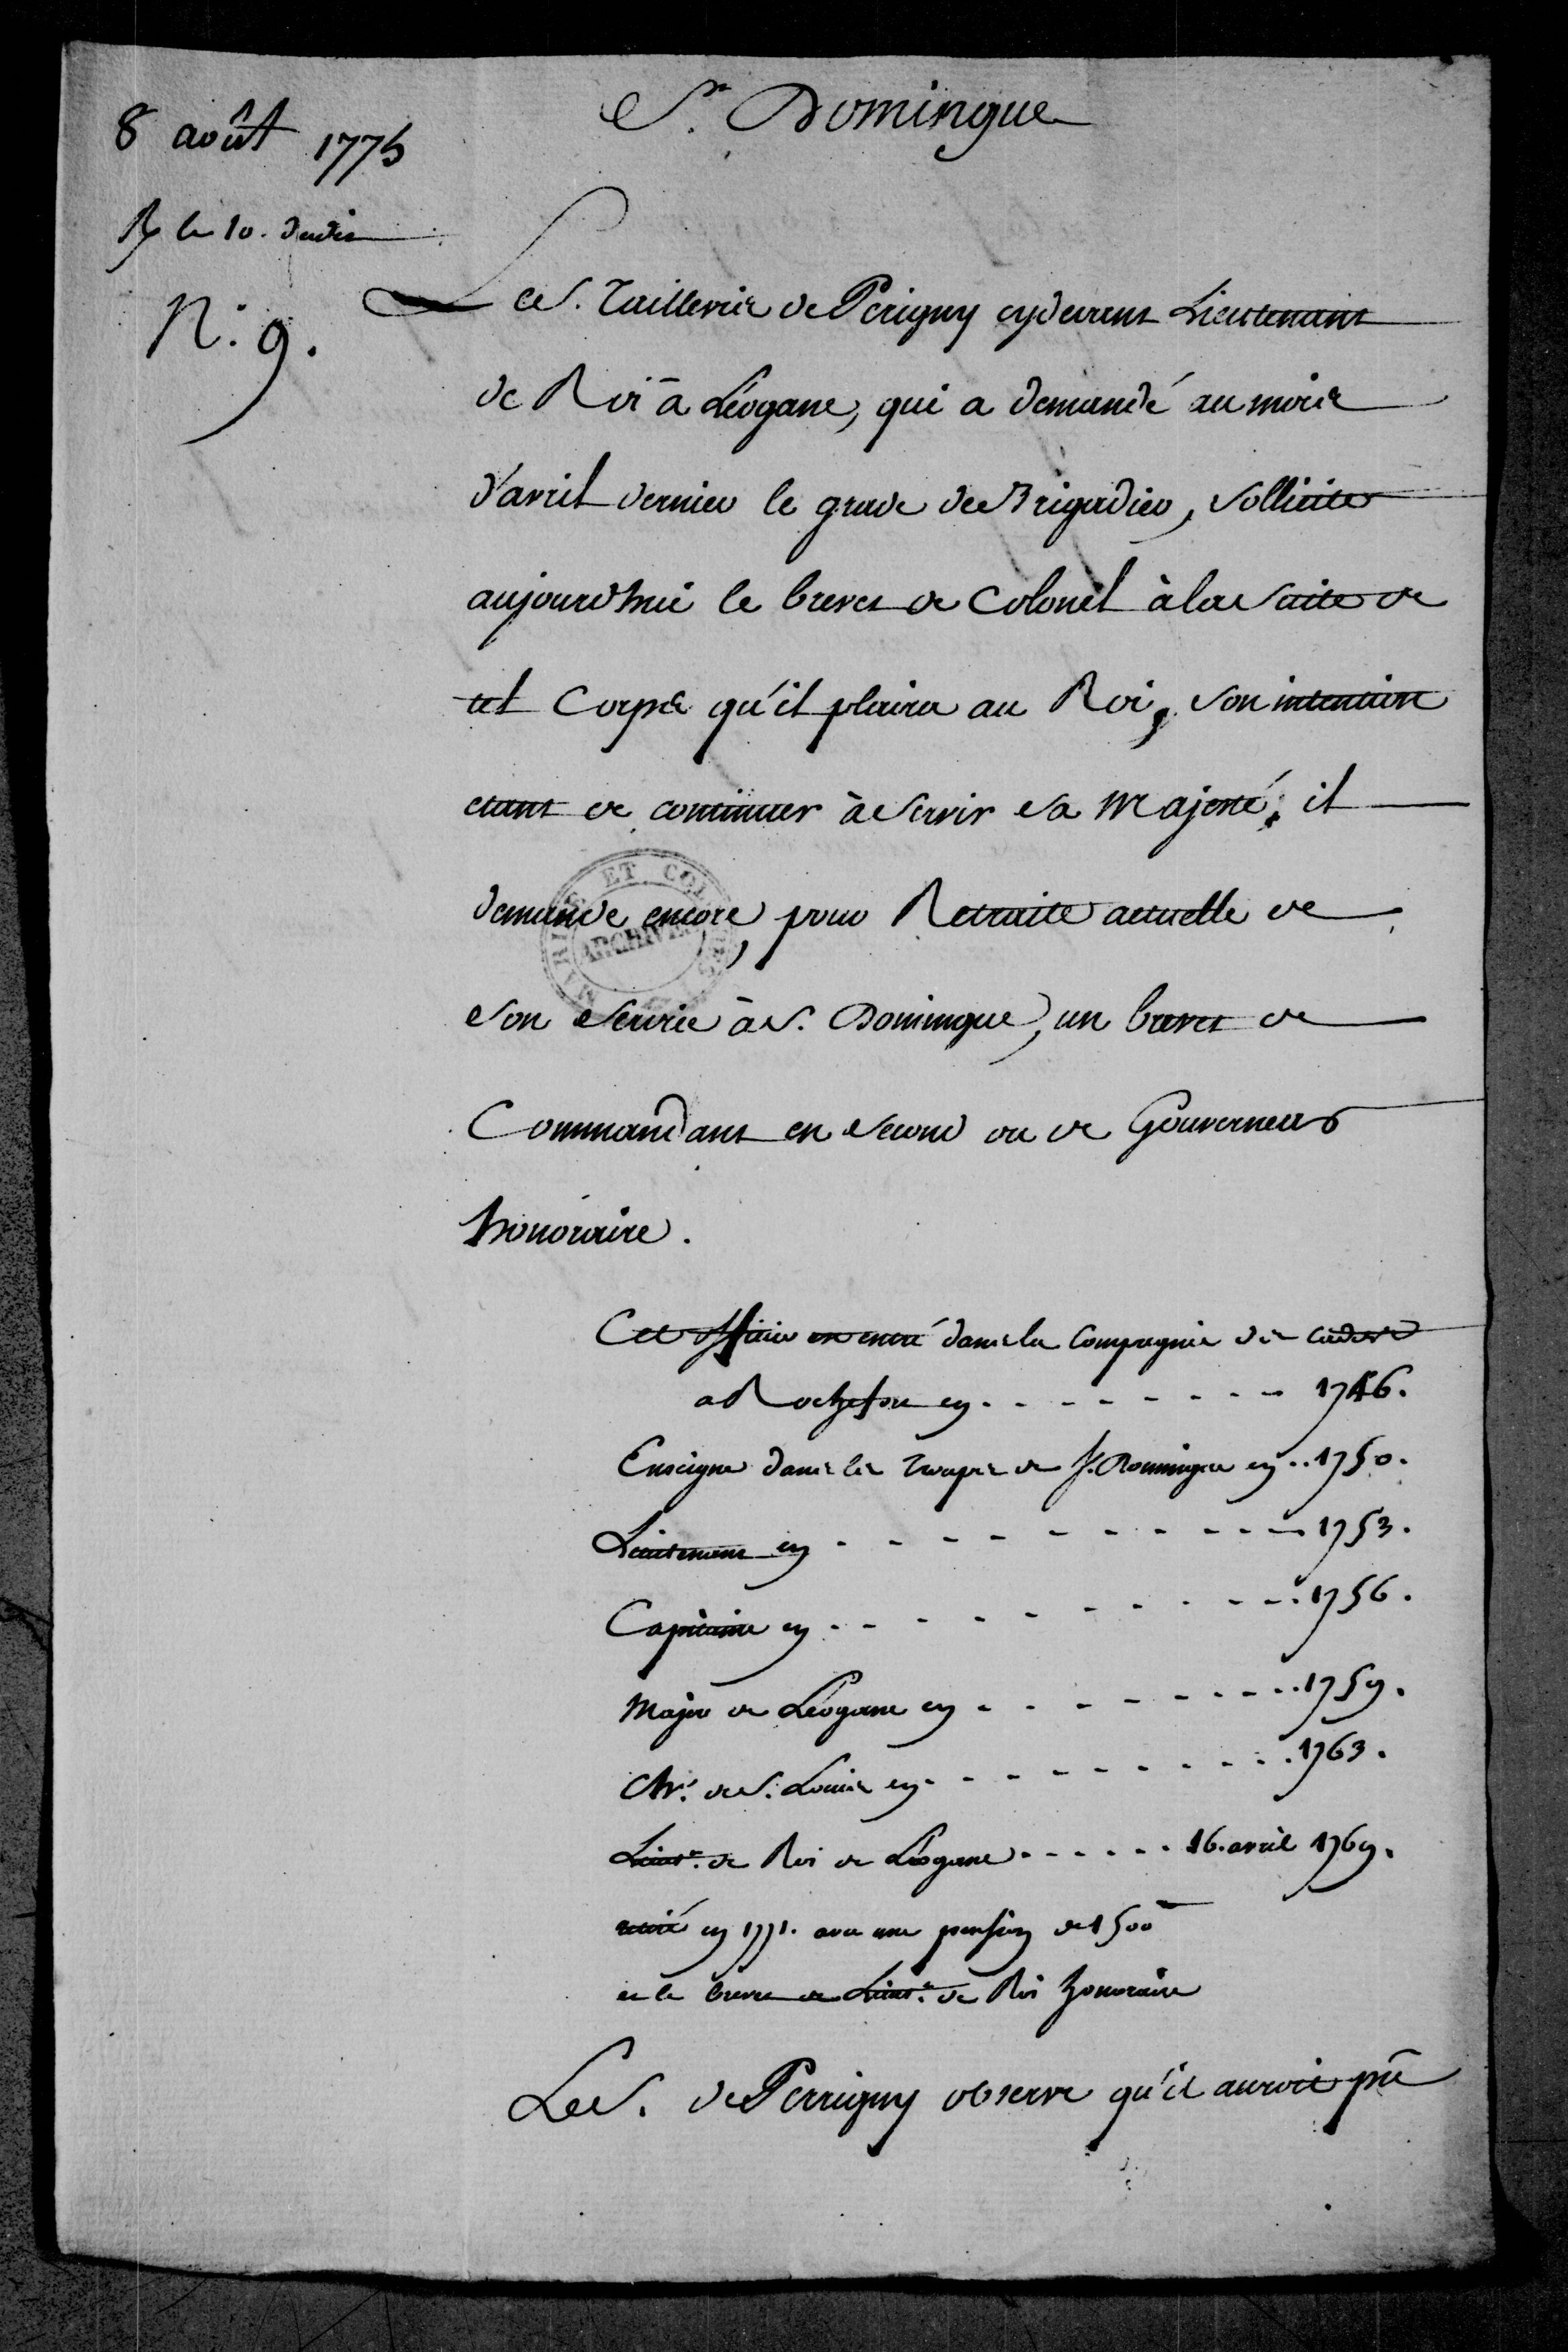 8 août 1775
St. Domingue
R le 10. dudit
N.° 9.
Le S. Taillevis de Périgny cydevant Lieutenant
de Roi à Léogane, qui a demandé au mois
d'avril dernier le grade de Brigadier, sollicite
aujourd'hui le brevet de Colonel à la suite de
tel Corps qu'il plaira au Roi, son intention
étant de continuer à servir sa Majesté; il
demande encore, pour Retraite actuelle de
son service à S. Domingue, un brevet de
Commandant en second ou de Gouverneur
honoraire.
MARINE ET COLONIES
ARCHIVES
Cet officier est entré dans la Compagnie des cadets
a Rochefort en - - - - - - - - 1746.
Enseigne dans les Troupes de S. Domingue en .. 1750.
Lieutenant en - - - - - - - - - - 1753.
Capitaine en - - - - - - - - - 1756.
Major de Léogane en - - - - - - - - 1759.
Chr. de S. Louis en - - - - - - - - - 1763.
Lieut. de Roi de Léogane - - - - - - 16. avril 1769.
retiré en 1771. avec une pension de 1500
et le brevet de Lieut. de Roi honoraire
Le S. de Perrigny observe qu'il auroit pû